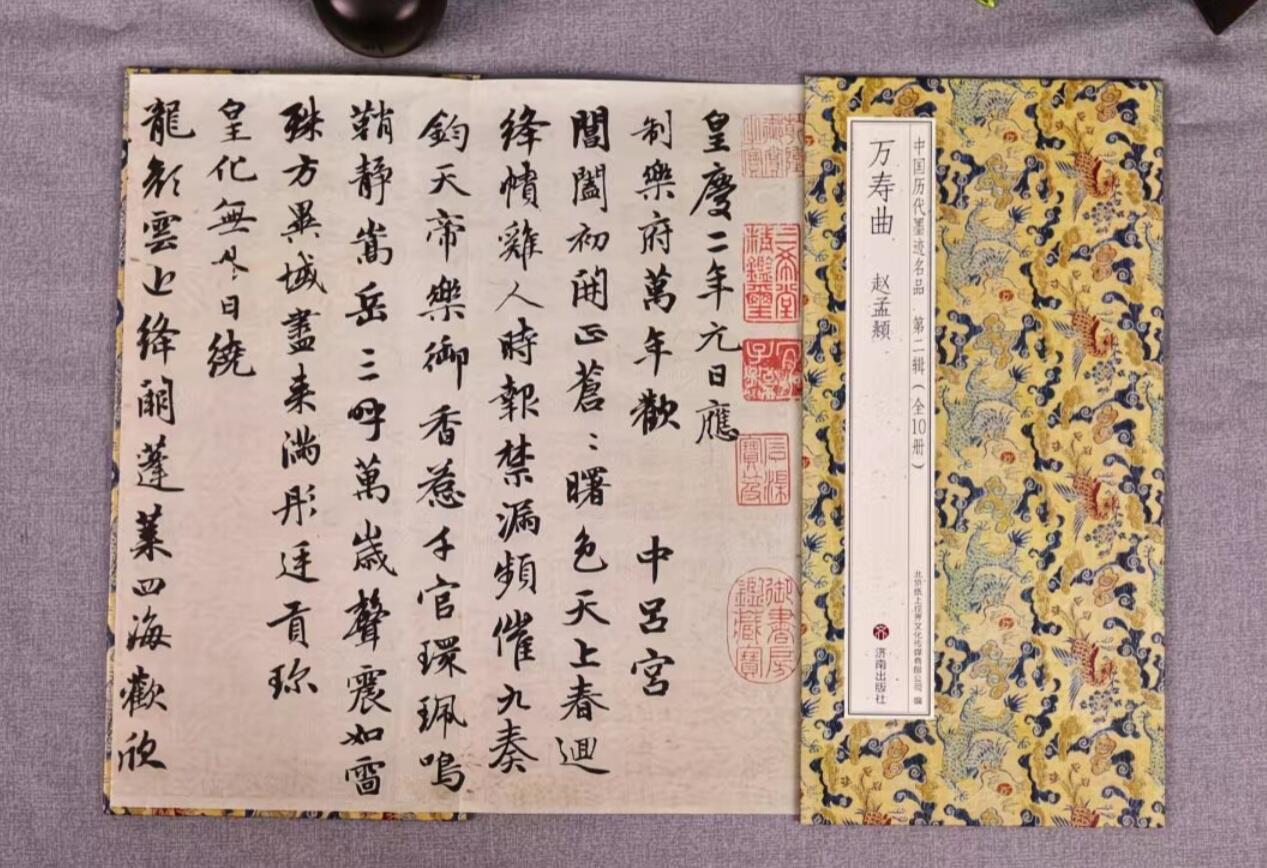 中国历代墨迹名品 第二辑（全10册）
万寿曲 赵孟頫
北京纸上世界文化传媒有限公司 编
济南出版社
三希堂精鑑璽
宜子孫
石渠寶笈
御書房鑑藏寶
皇慶二年元日應
制樂府萬年歡 中呂宮
閶闔初開正蒼〻曙色天上春迴
絳幘雞人時報禁漏頻催九奏
鈞天帝樂御香惹千官環珮鳴
鞘靜嵩岳三呼萬歲聲震如雷
殊方異域盡来滿彤廷貢珎
皇化無外日繞
龍顏雲近絳闕蓬萊四海歡欣